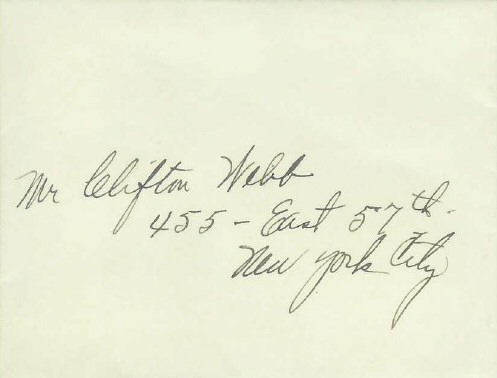 Mr Clifton Webb
455 - East 57th.
New York City